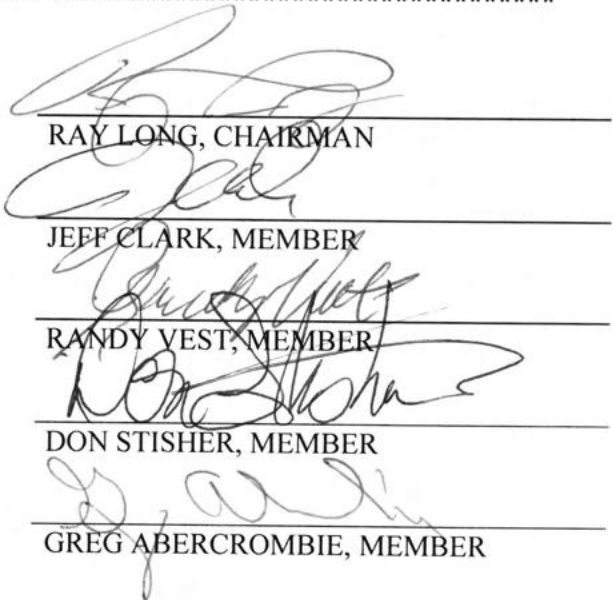 RAY LONG, CHAIRMAN
JEFF CLARK, MEMBER
Randy Vest
RANDY VEST, MEMBER
Don Stisher
DON STISHER, MEMBER
GREG ABERCROMBIE, MEMBER